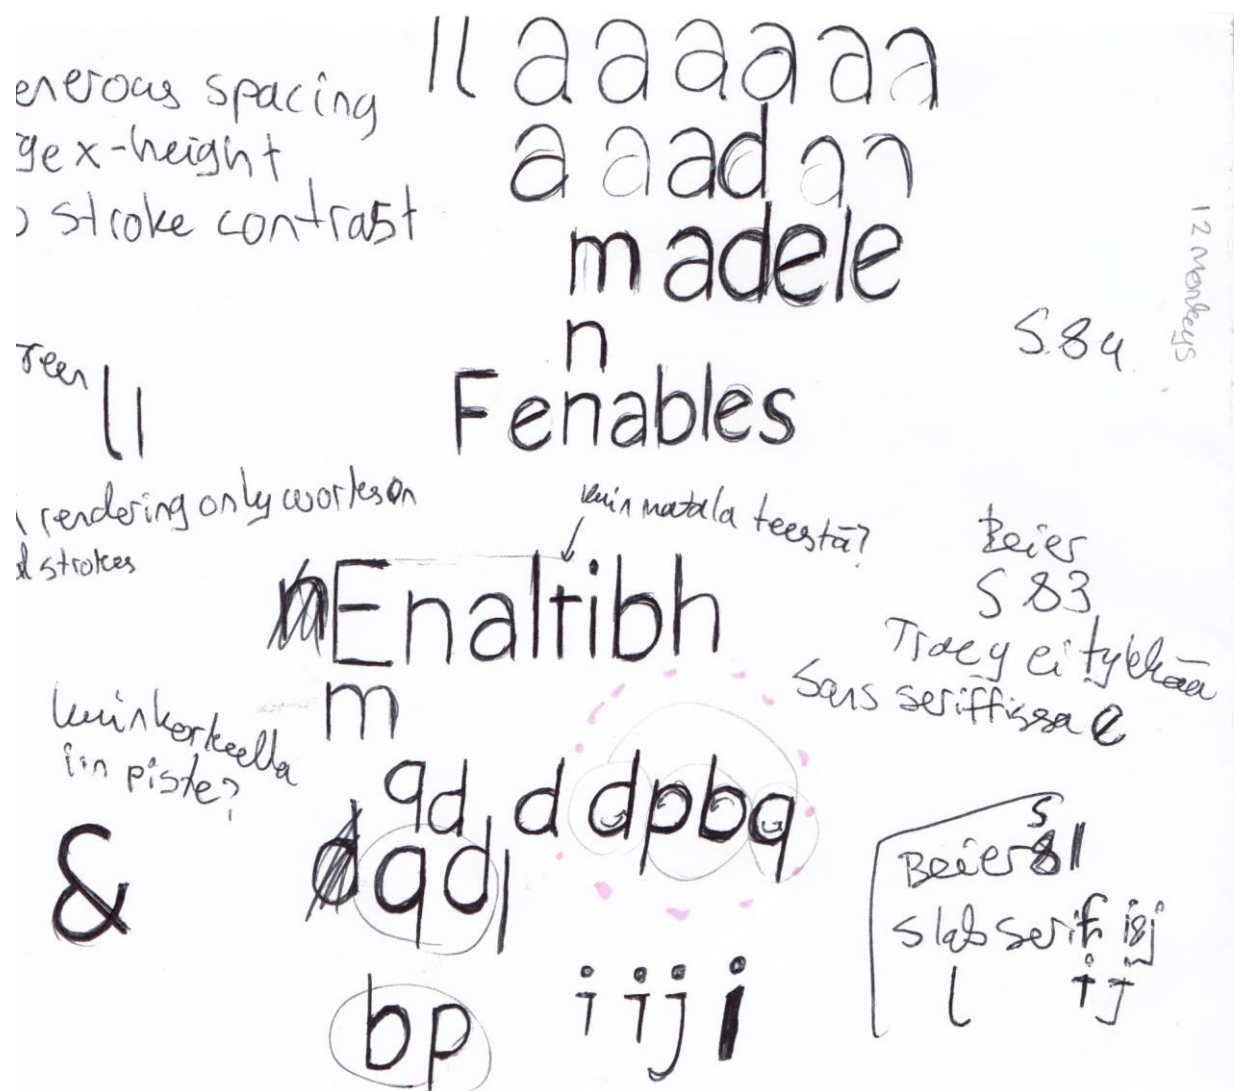 ll a a a a a a
enerous spacing
ge x-height
o stroke contrast
a a a d a a
m adele
n
12 Monkeys
S. 84
reen
ll
Fenables
rendering only works on
strokes
kuin matala teestä?
Enaltibh
m
Beier
S 83
Tracy ei tykkää
sans seriffissa e
kuin korkeella
iin piste?
qd, d dpbq
d qd,
&
bp
i ij i
S
Beier 81
slab serif i&j
l i j